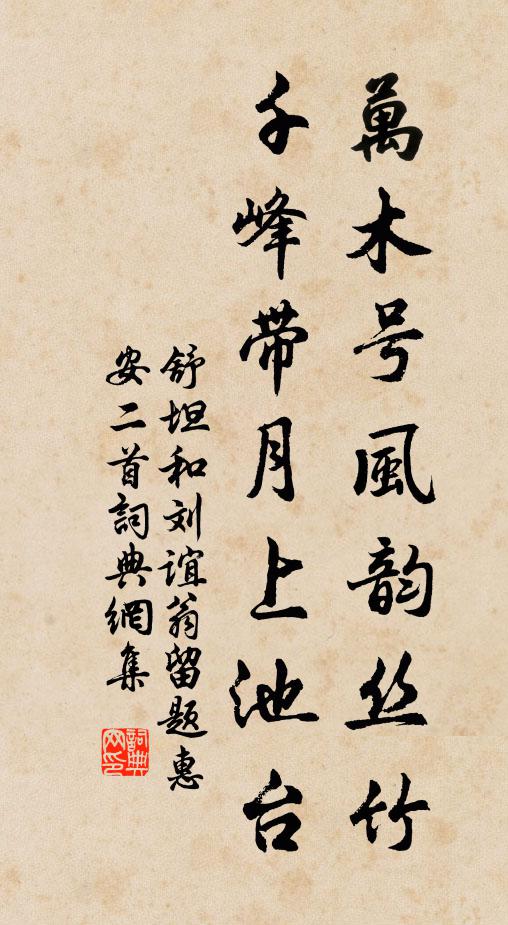 萬木号風韵丝竹
千峰带月上池台
舒坦和刘谊翁留题惠
安二首詞典網集
詞典
网印